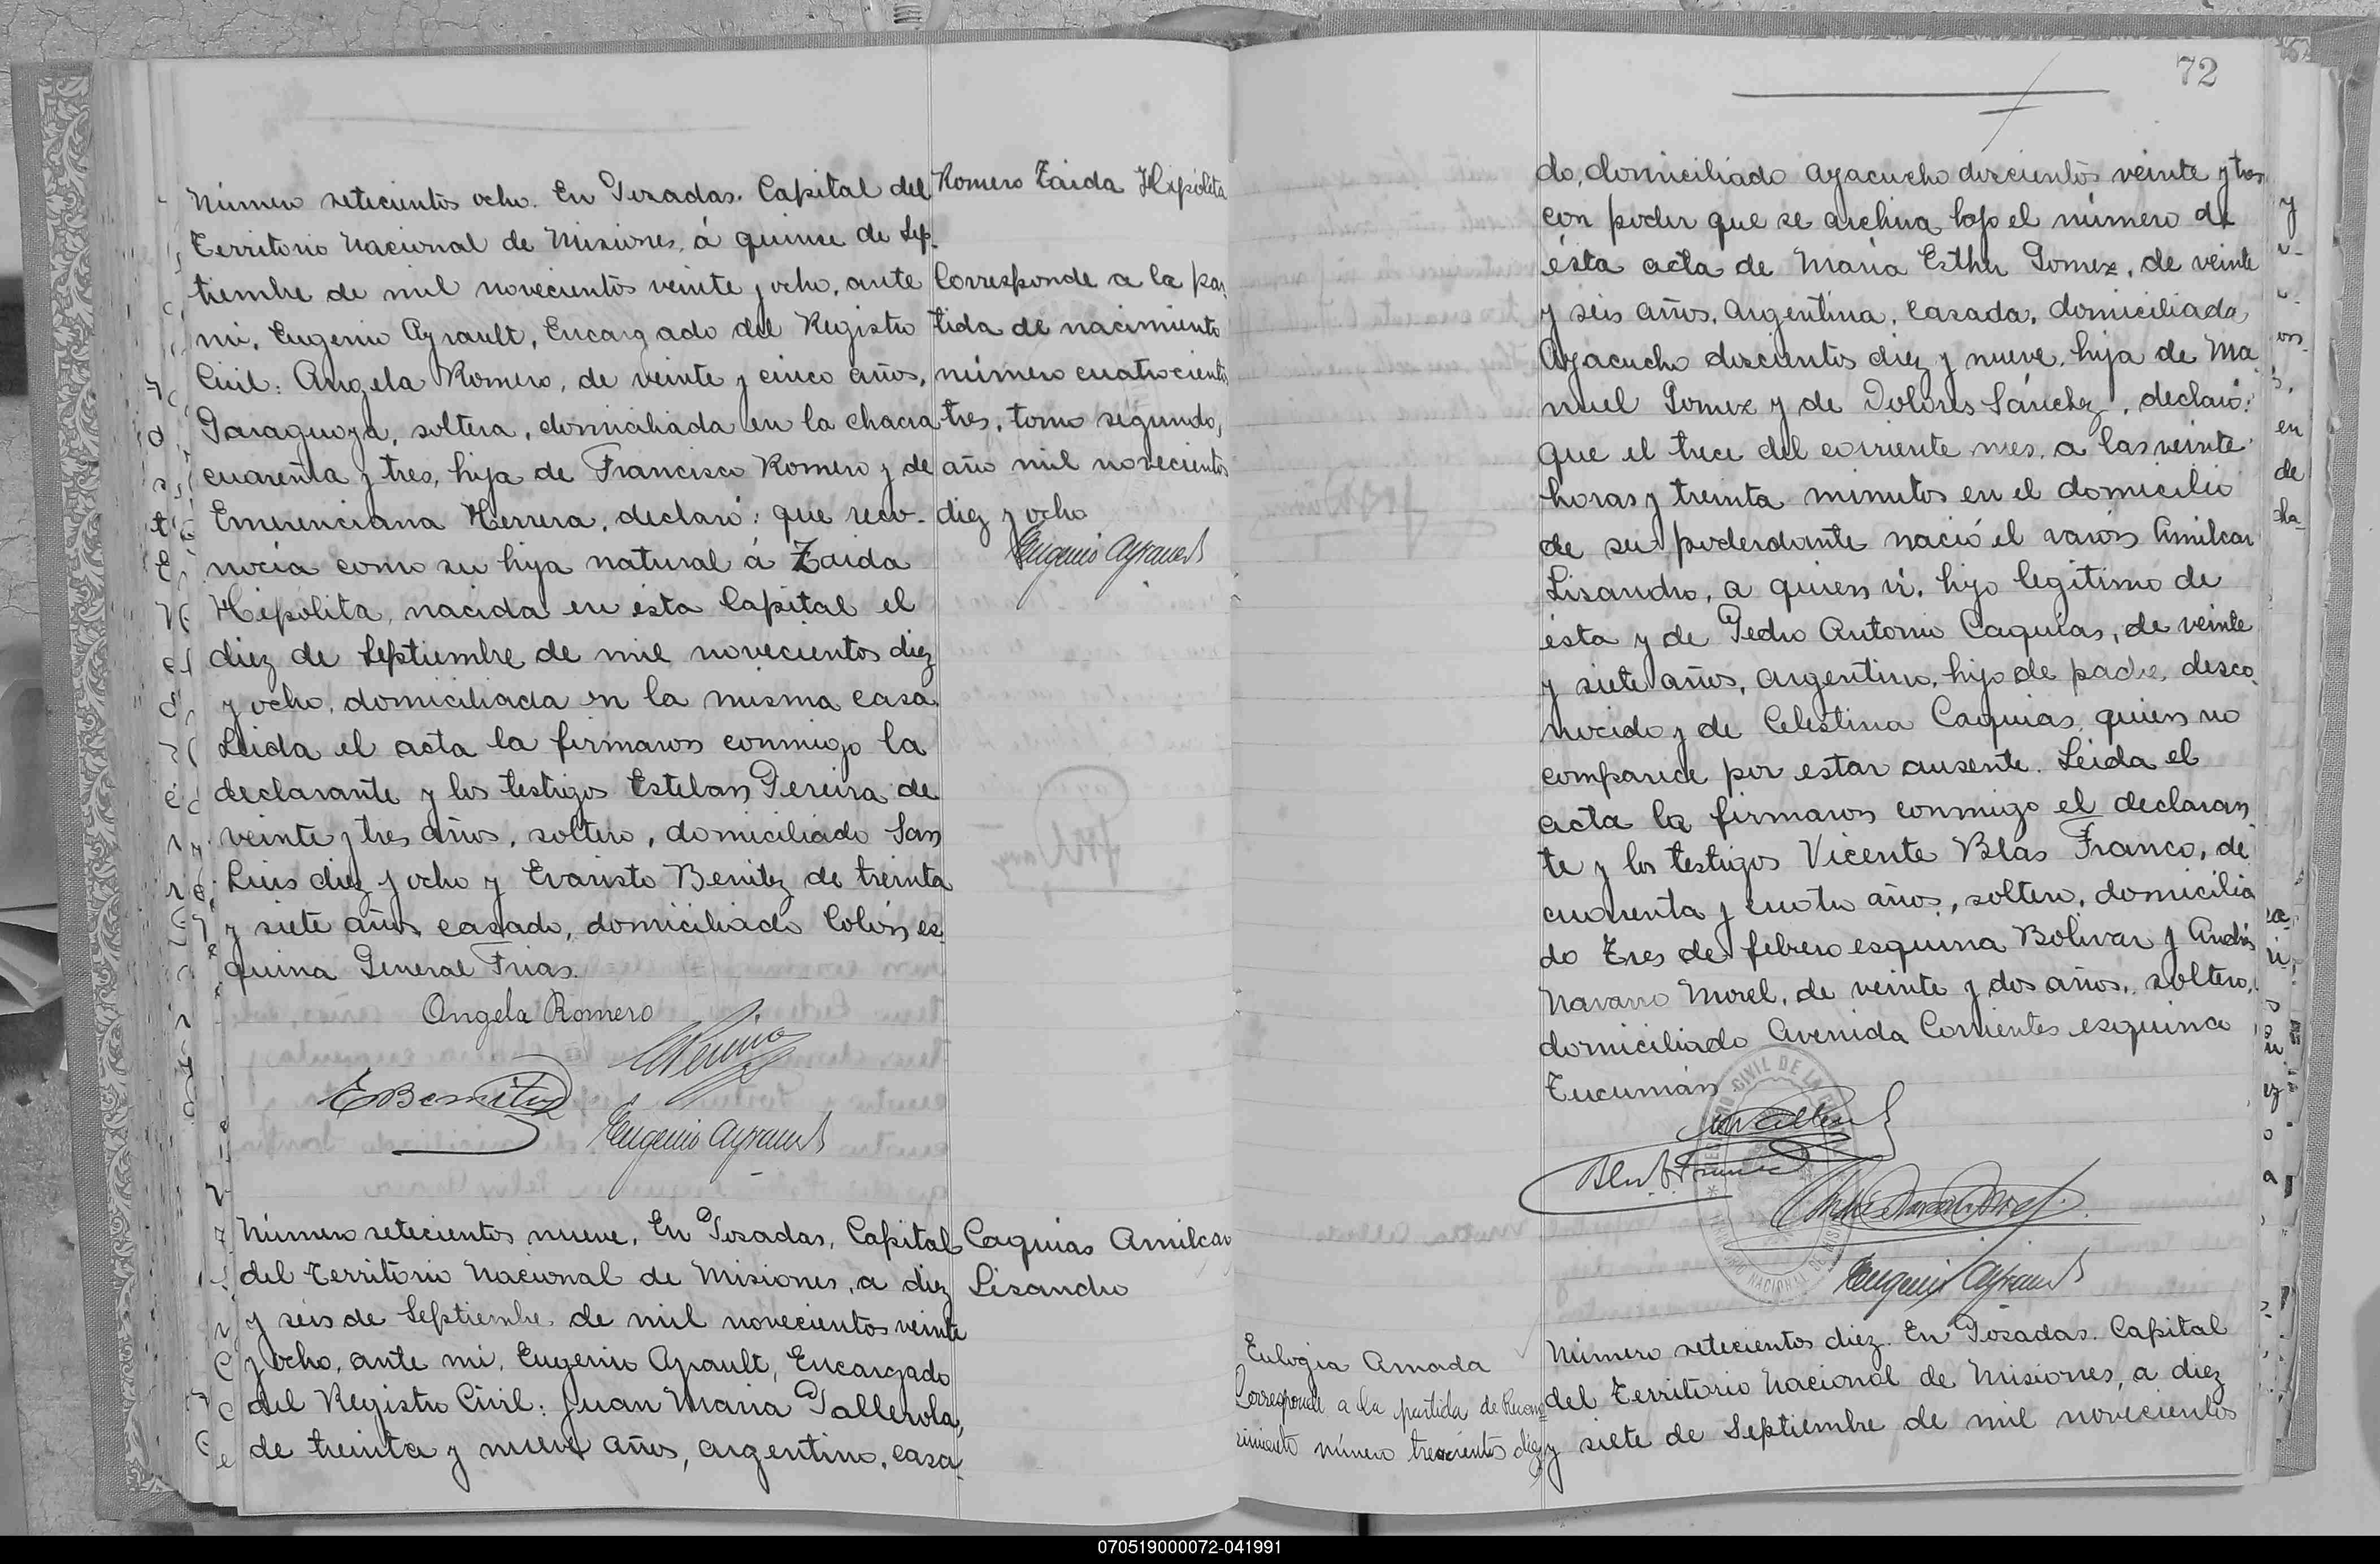 Romero Zaida Hipólita
Número setecientos ocho. En Posadas. Capital del
Territorio Nacional de Misiones, á quinse de Sep-
tiembre de mil novecientos veinte y ocho, ante
mi, Eugenio Ayrault, Encargado del Registro
Civil: Angela Romero, de veinte y cinco años,
Paraguaya, soltera, domiciliada en la chacra
cuarenta y tres, hija de Francisco Romero y de
Emerenciana Herrera, declaró: que reco-
nocia como su hija natural á Zaida
Hipólita, nacida en ésta Capital el
diez de Septiembre de mil novecientos diez
y ocho, domiciliada en la misma casa.
Leida el acta la firmaron conmigo la
declarante y los testigos Esteban Pereira de
veinte y tres años, soltero, domiciliado San
Luis diez y ocho y Evaristo Benitez de treinta
y siete años, casado, domiciliado Colón es-
quina General Frias.
Corresponde a la par-
tida de nacimiento
número cuatrocientos
tres, tomo segundo,
año mil novecientos
diez y ocho
Eugenio Ayrault
Angela Romero
EPereira
EBenitez
Eugenio Ayrault
Caquias Amilcar
Lisandro
Número setecientos nueve. En Posadas, Capital
del Territorio Nacional de Misiones, a diez
y seis de Septiembre de mil novecientos veinte
y ocho, ante mi, Eugenio Ayrault, Encargado
del Registro Civil: Juan Maria Pallerola,
de treinta y nueve años, argentino, casa-
72
do, domiciliado Ayacucho doscientos veinte y tres
con poder que se archiva bajo el número de
ésta acta de Maria Esther Gomez, de veinte
y seis años, Argentina, casada, domiciliada
Ayacucho doscientos diez y nueve, hija de Ma
nuel Gomez y de Dolores Sánchez, declaró:
Que el trece del corriente mes, a las veinte
horas y treinta minutos en el domicilio
de su poderdante nació el varón Amilcar
Lisandro, a quien vi, hijo legitimo de
ésta y de Pedro Antonio Caquias, de veinte
y siete años, Argentino, hijo de padre desco-
nocido y de Celestina Caquias, quien no
comparece por estar ausente. Leida el
acta la firmaron conmigo el declaran
te y los testigos Vicente Blas Franco, de
cuarenta y cuatro años, soltero, domicilia
do Tres de febrero esquina Bolivar y Andrés
Navarro Morel, de veinte y dos años, soltero,
domiciliado Avenida Corrientes esquina
Tucumán
Eugenio Ayrault
Eulogia Amada
Corresponde a la partida de Recono-
cimiento número trescientos diez
Número setecientos diez. En Posadas. Capital
del Territorio Nacional de Misiones, a diez
y siete de Septiembre de mil novecientos
070519000072-041991